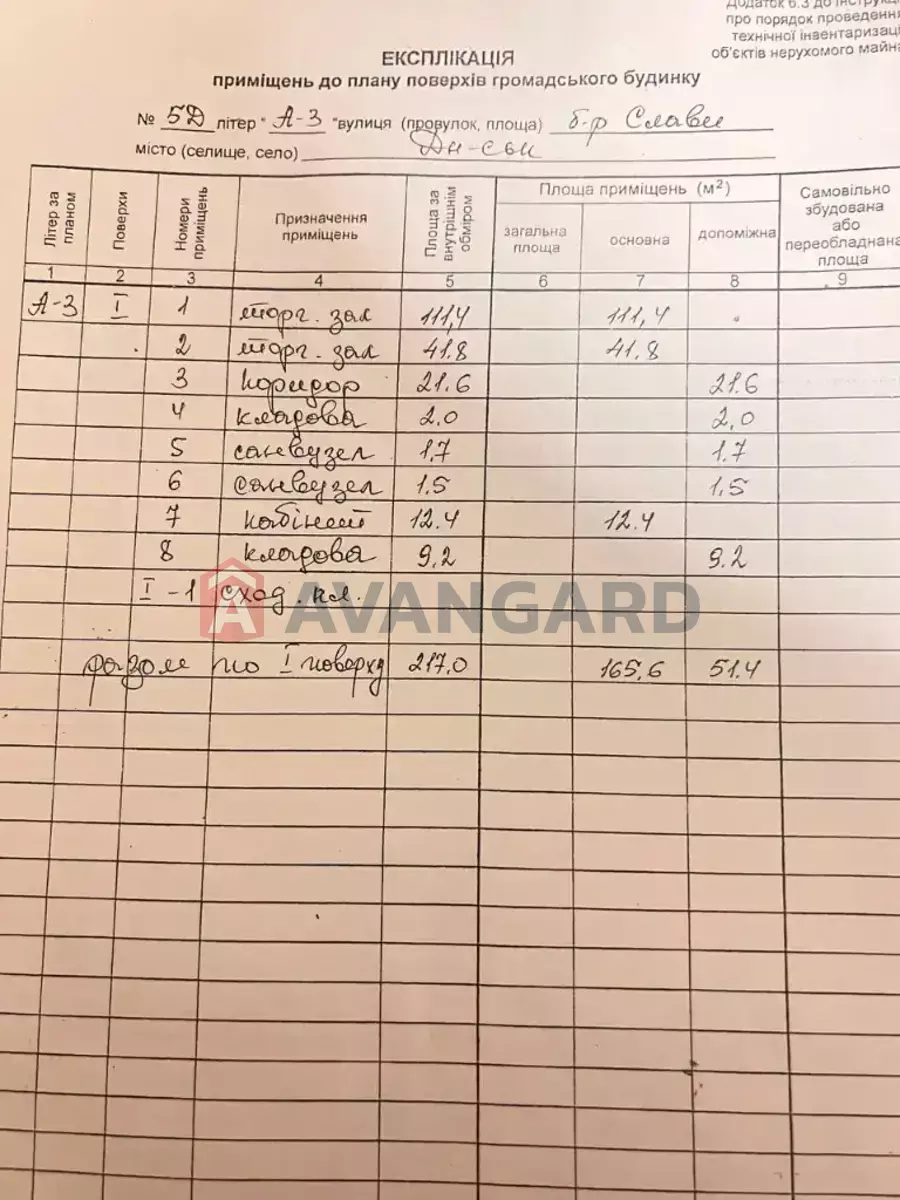 Додаток 6.3 до Інструкц
про порядок проведенн
технічної інвентаризаці
об'єктів нерухомого майна
ЕКСПЛІКАЦІЯ
приміщень до плану поверхів громадського будинку
№ 5Д літер " А-3 "вулиця (провулок, площа) б-р Слави
місто (селище, село)
Літер за планом Поверхи Номери приміщень Призначення приміщень Площа за внутрішнім обміром Площа приміщень (м²) загальна площа основна допоміжна Самовільно збудована або переобладнана площа
1 2 3 4 5 6 7 8 9
А-3 I 1 торг. зал 111,4 111,4
2 торг. зал 41.8 41.8
3 коридор 21.6 21.6
4 кладова 2.0 2,0
5 санвузел 1.7 1.7
6 санвузел 1.5 1,5
7 кабінет 12.4 12.4
8 кладова 9,2 9.2
I-1 сход. кл.
AVANGARD
разом по I поверху 217.0 165,6 51.4